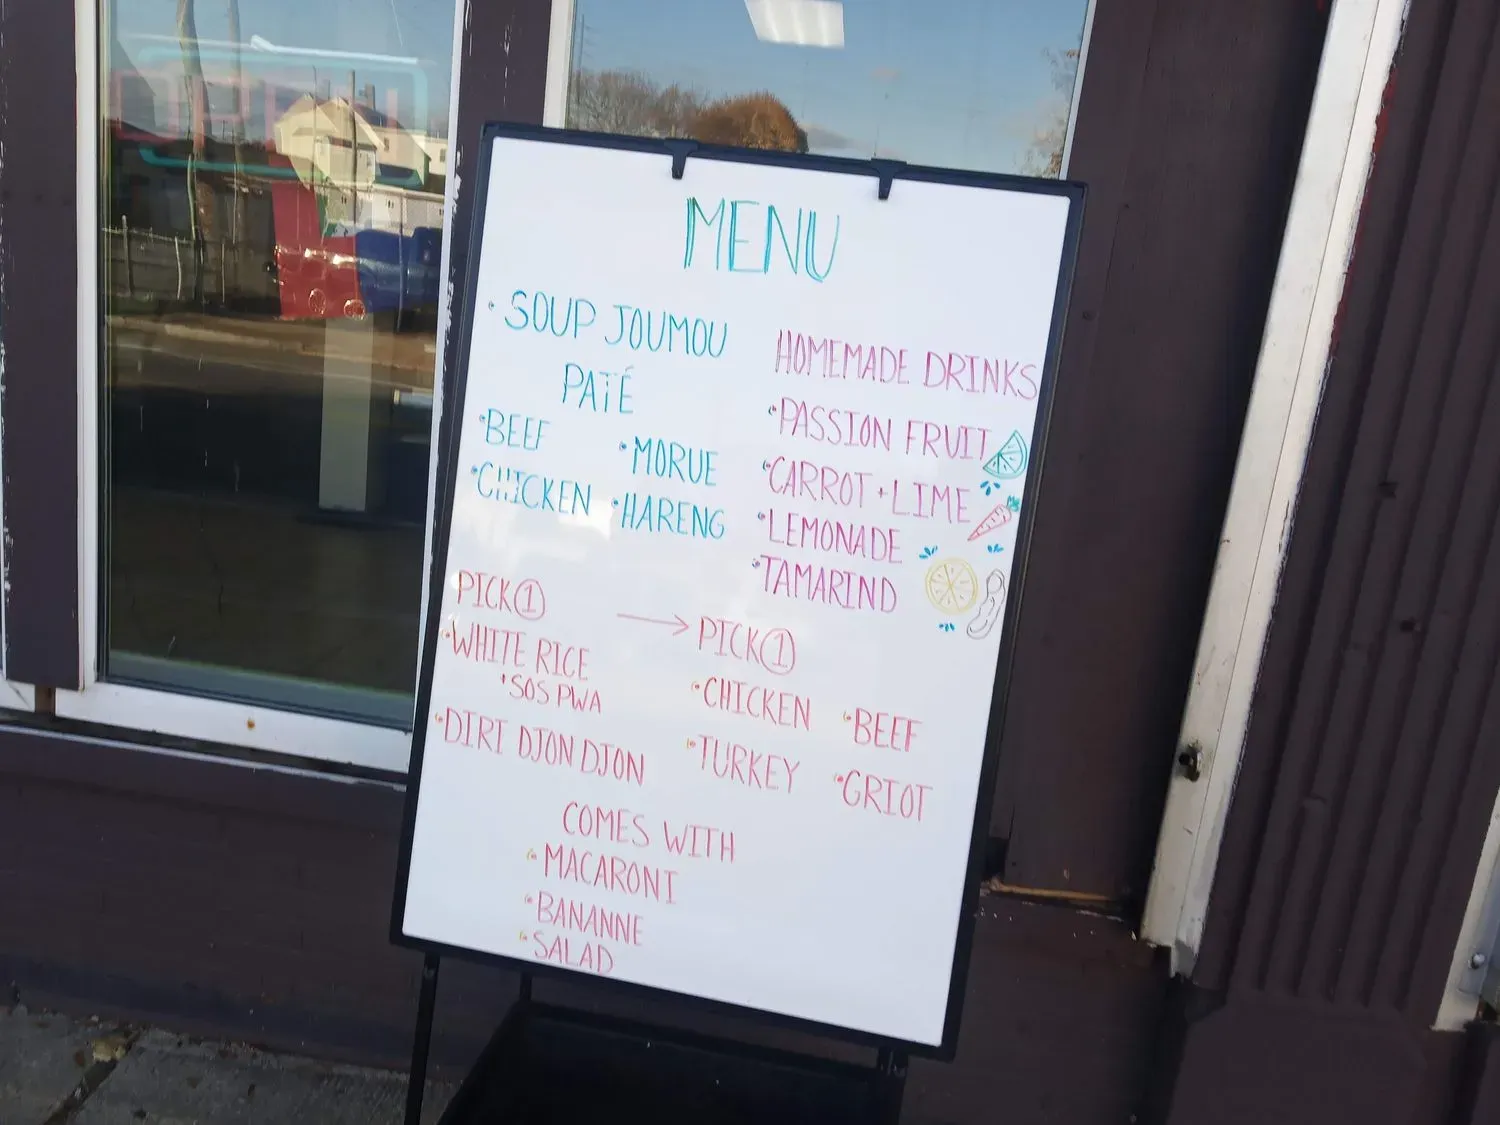 OPEN
MENU
• SOUP JOUMOU
PATÉ
• BEEF
• MORUE
• CHICKEN
• HARENG
HOMEMADE DRINKS
• PASSION FRUIT
• CARROT + LIME
• LEMONADE
• TAMARIND
PICK ①
• WHITE RICE
• SOS PWA
• DIRI DJON DJON
→ PICK ①
• CHICKEN
• BEEF
• TURKEY
• GRIOT
COMES WITH
• MACARONI
• BANANNE
• SALAD